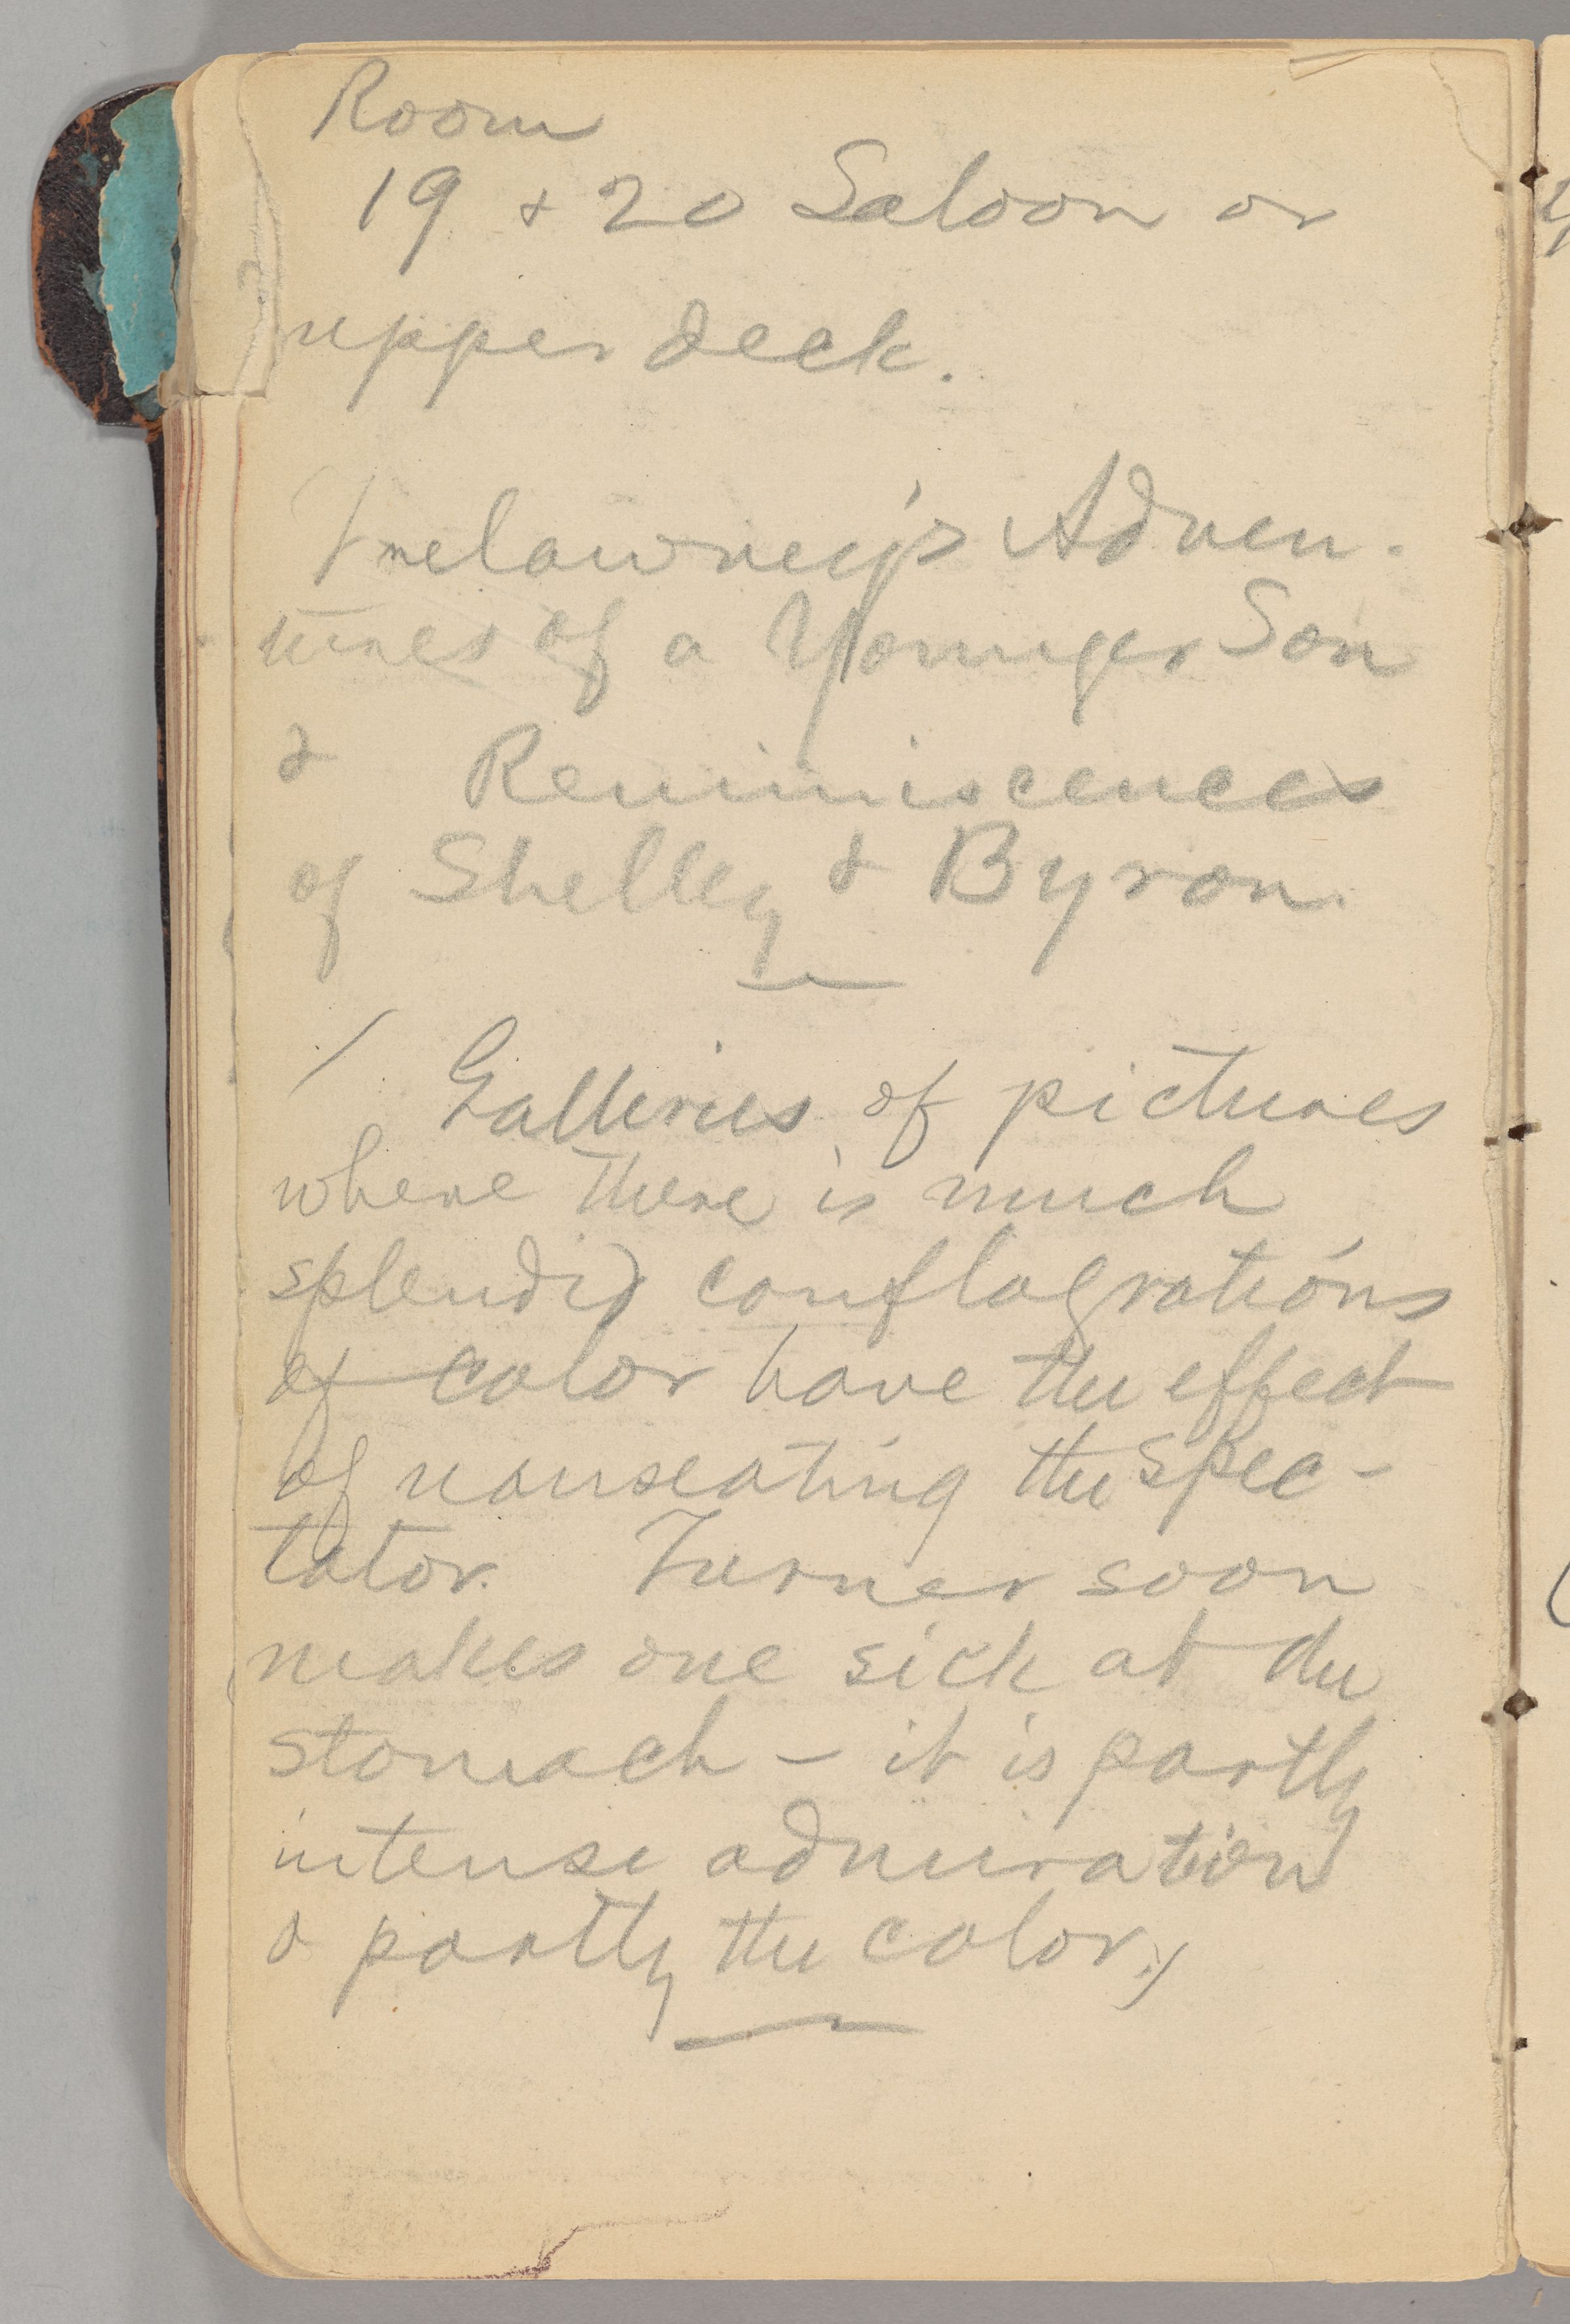 Room
19 & 20 Saloon or
upper deck.
Trelawney's Adven-
tures of a Younger Son
& Reminiscences
of Shelley & Byron.
/ Galleries of pictures
where there is much
splendid conflagrations
of color have the effect
of nauseating the spec-
tator. Turner soon
makes one sick at the
stomach – it is partly
intense admiration
& partly the color./